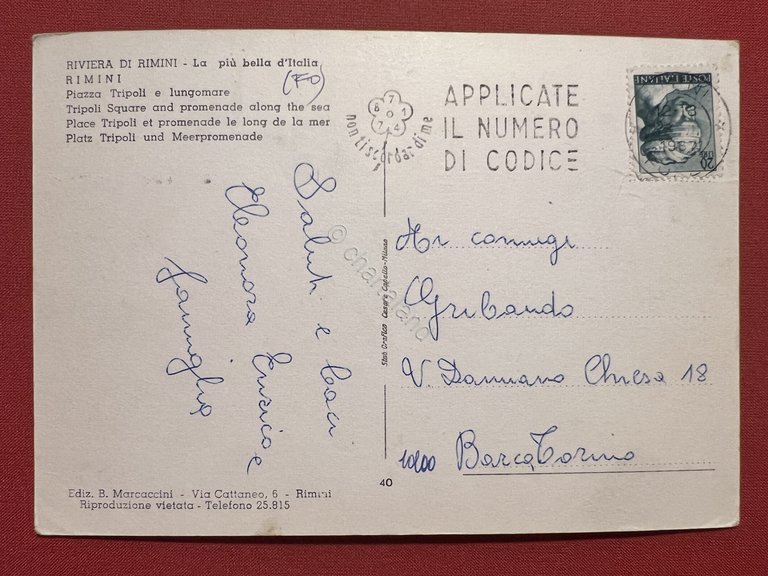 RIVIERA DI RIMINI - La più bella d'Italia
RIMINI
(FO)
Piazza Tripoli e lungomare
Tripoli Square and promenade along the sea
Place Tripoli et promenade le long de la mer
Platz Tripoli und Meerpromenade
non ti scordar di me
APPLICATE
IL NUMERO
DI CODICE
POSTE ITALIANE
LIRE 20
1967
Saluti e baci
Eleonora Enrico e
famiglia
© chartaland
Stab. Grafico Cesare Capello - Milano
Ai coniugi
Gribaudo
V. Damiano Chiesa 18
10100 Barca Torino
40
Ediz. B. Marcaccini - Via Cattaneo, 6 - Rimini
Riproduzione vietata - Telefono 25.815